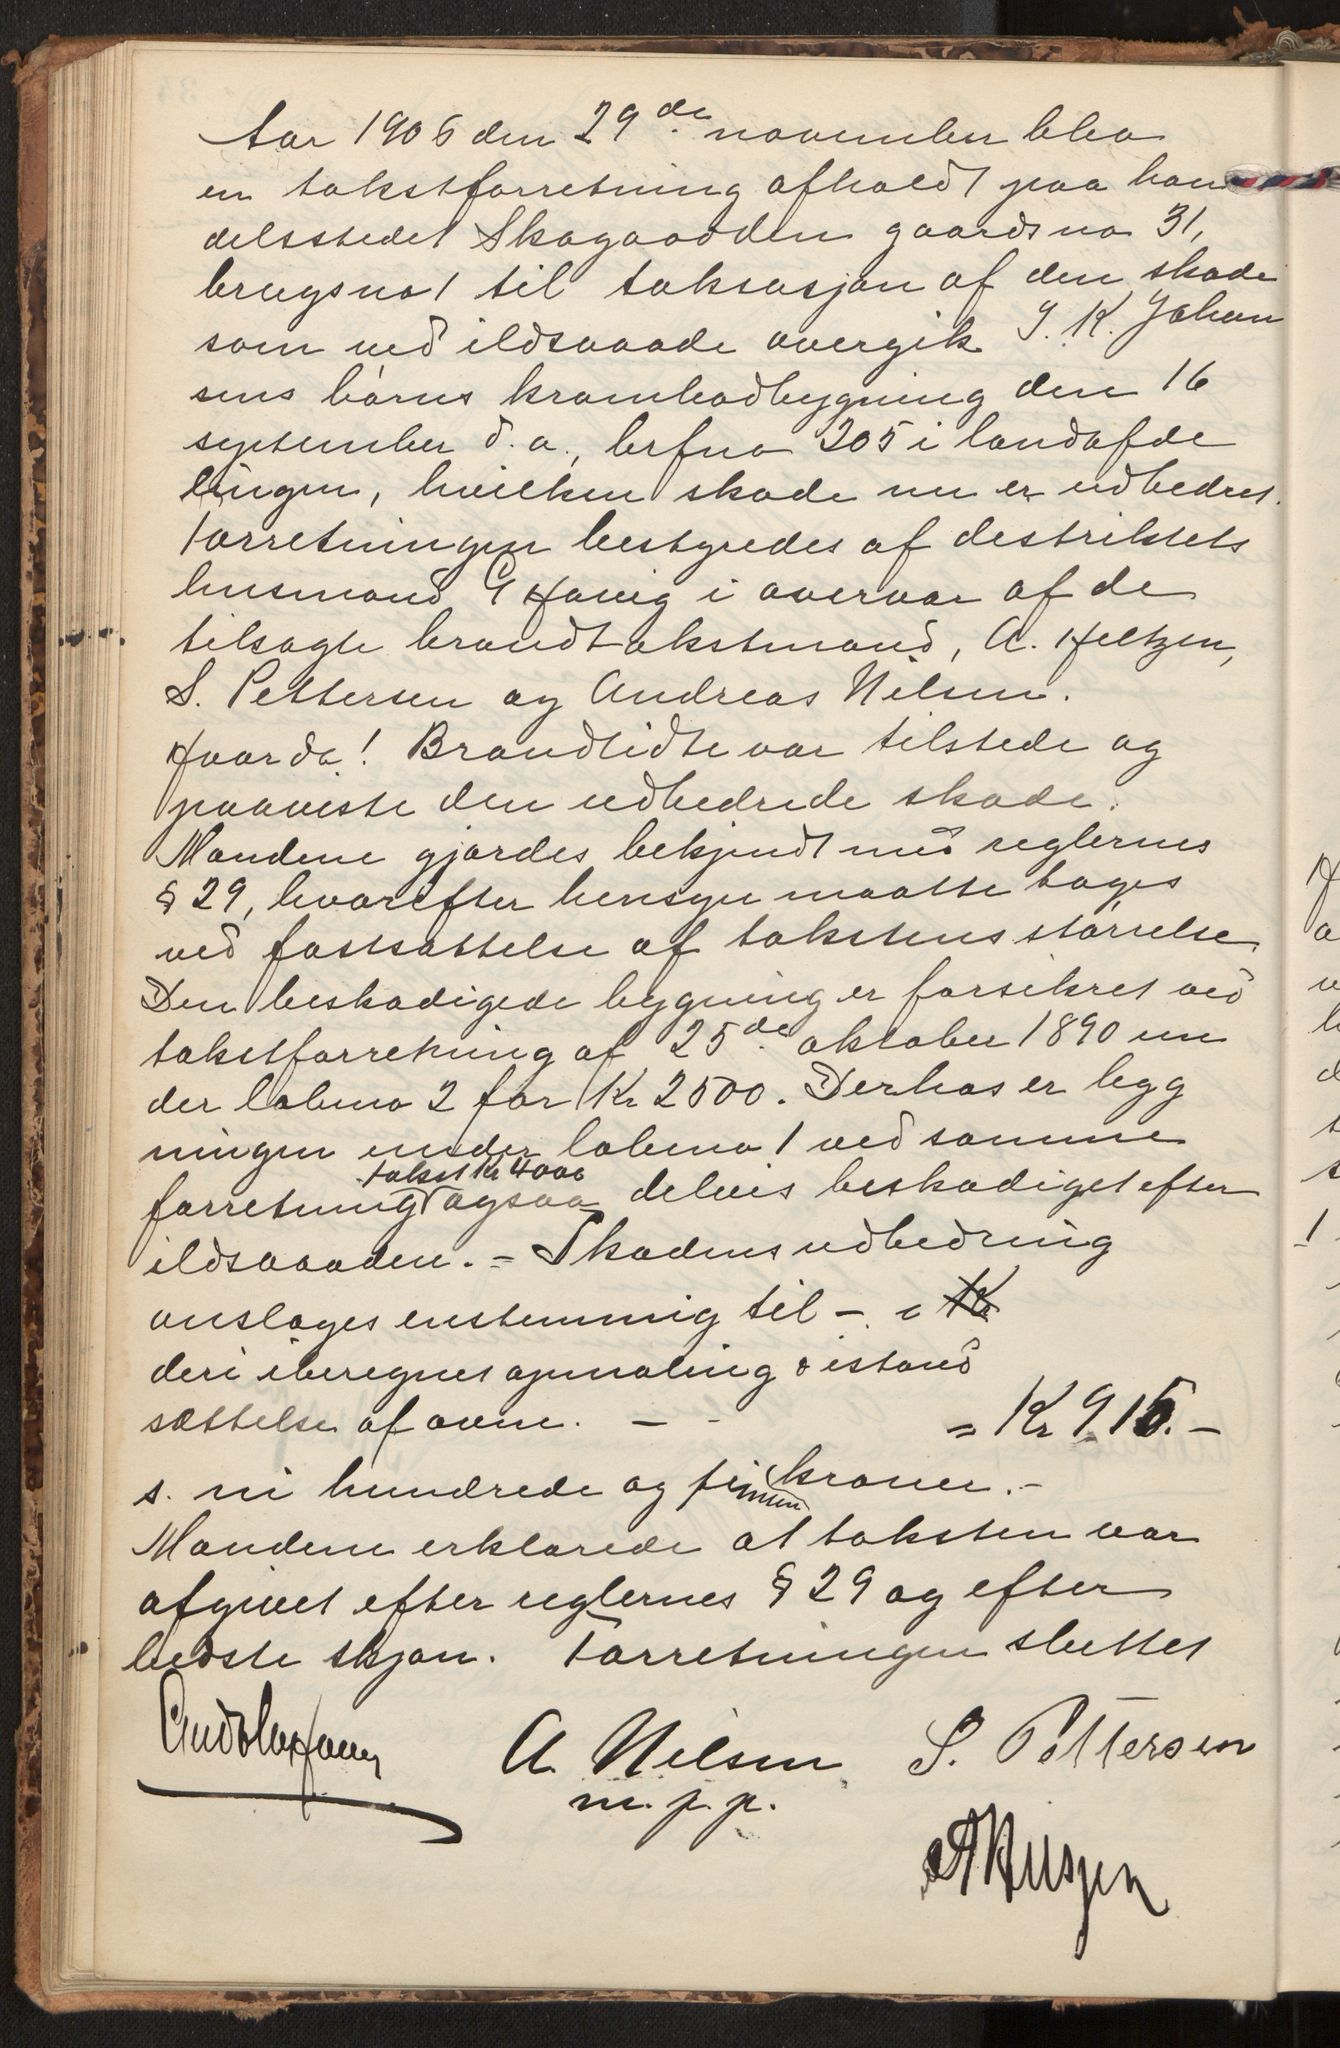 Aar 1906 den 29de november blev
en takstforretning afholdt paa han
delsstedet Skagaodden gaardsno 31,
brugsno 1 til taksasjon af den skade
som ved ildsvaade overgik J. K. Johan
sens børns krambodbygning den 16
september d. a., brfno 205 i landafde
lingen, hvilken skade nu er udbedret.
Forretningen bestyredes af destriktets
lensmand Hovig i overvær af de
tilsagte brandtakstmænd, A. Heltzen,
S. Pettersen og Andreas Nilsen.
Hvorda! Brandlidte var tilstede og
paaviste den udbedrede skade.
Mændene gjordes bekjendt med reglernes
§ 29, hvorefter hensyn maatte tages
ved fastsættelse af takstens størrelse.
Den beskadigede bygning er forsikret ved
takstforretning af 25de oktober 1890 un
der labeno 2 for Kr 2500. Derhos er byg
ningen under labeno 1 ved samme
takst Kr 4000
forretning ogsaa delvis beskadiget efter
ildsvaaden. - Skadens udbedring
anslages enstemmig til -
deri iberegnet opmaling & istand
sættelse af ovne. - - = Kr 915. -
s. ni hundrede og femten kroner. -
Mændene erklærede at taksten var
afgivet efter reglernes § 29 og efter
bedste skjøn. Forretningen sluttet
A. Nilsen S. Pettersen
m. p. p.